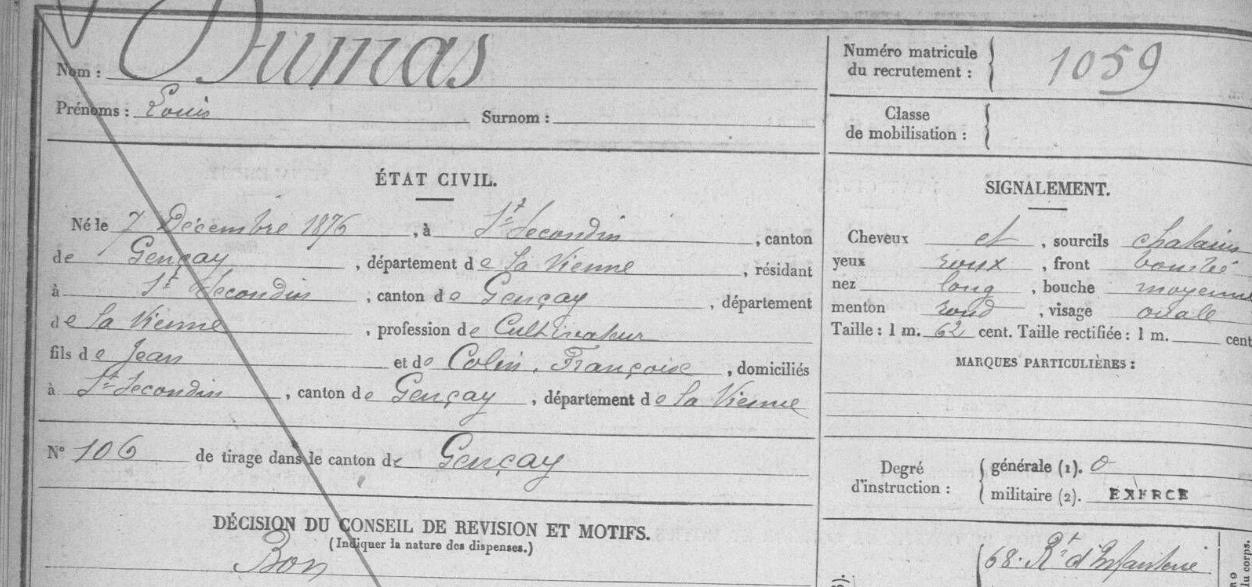 Nom : Dumas
Prénoms : Louis Surnom :
Numéro matricule
du recrutement : 1059
Classe
de mobilisation :
ÉTAT CIVIL.
Né le 7 Décembre 1876, à St Secondin, canton
de Gençay, département de la Vienne, résidant
à St Secondin, canton de Gençay, département
de la Vienne, profession de Cultivateur
fils de Jean et de Colin, Françoise, domiciliés
à St Secondin, canton de Gençay, département de la Vienne
N° 106 de tirage dans le canton de Gençay
DÉCISION DU CONSEIL DE REVISION ET MOTIFS.
(Indiquer la nature des dispenses.)
Bon
SIGNALEMENT.
Cheveux et, sourcils chatains
yeux roux, front bombé
nez long, bouche moyenne
menton rond, visage ovale
Taille : 1 m. 62 cent. Taille rectifiée : 1 m. cent
MARQUES PARTICULIÈRES :
Degré
d'instruction :
générale (1). 0
militaire (2). EXERCE
68e Rt d'Infanterie
corps.